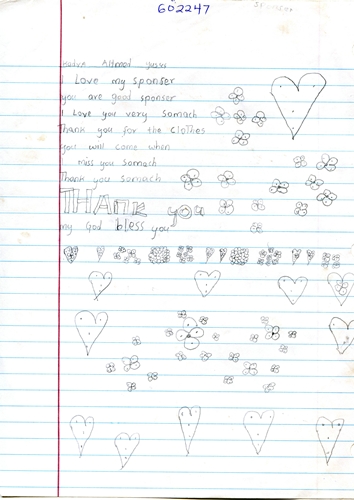 602247
I Love my sponser
you are good sponser
I Love you very Somach
thank you for the clothes
you will come when
miss you Somach
Thank you somach
THANK you
my God bless you